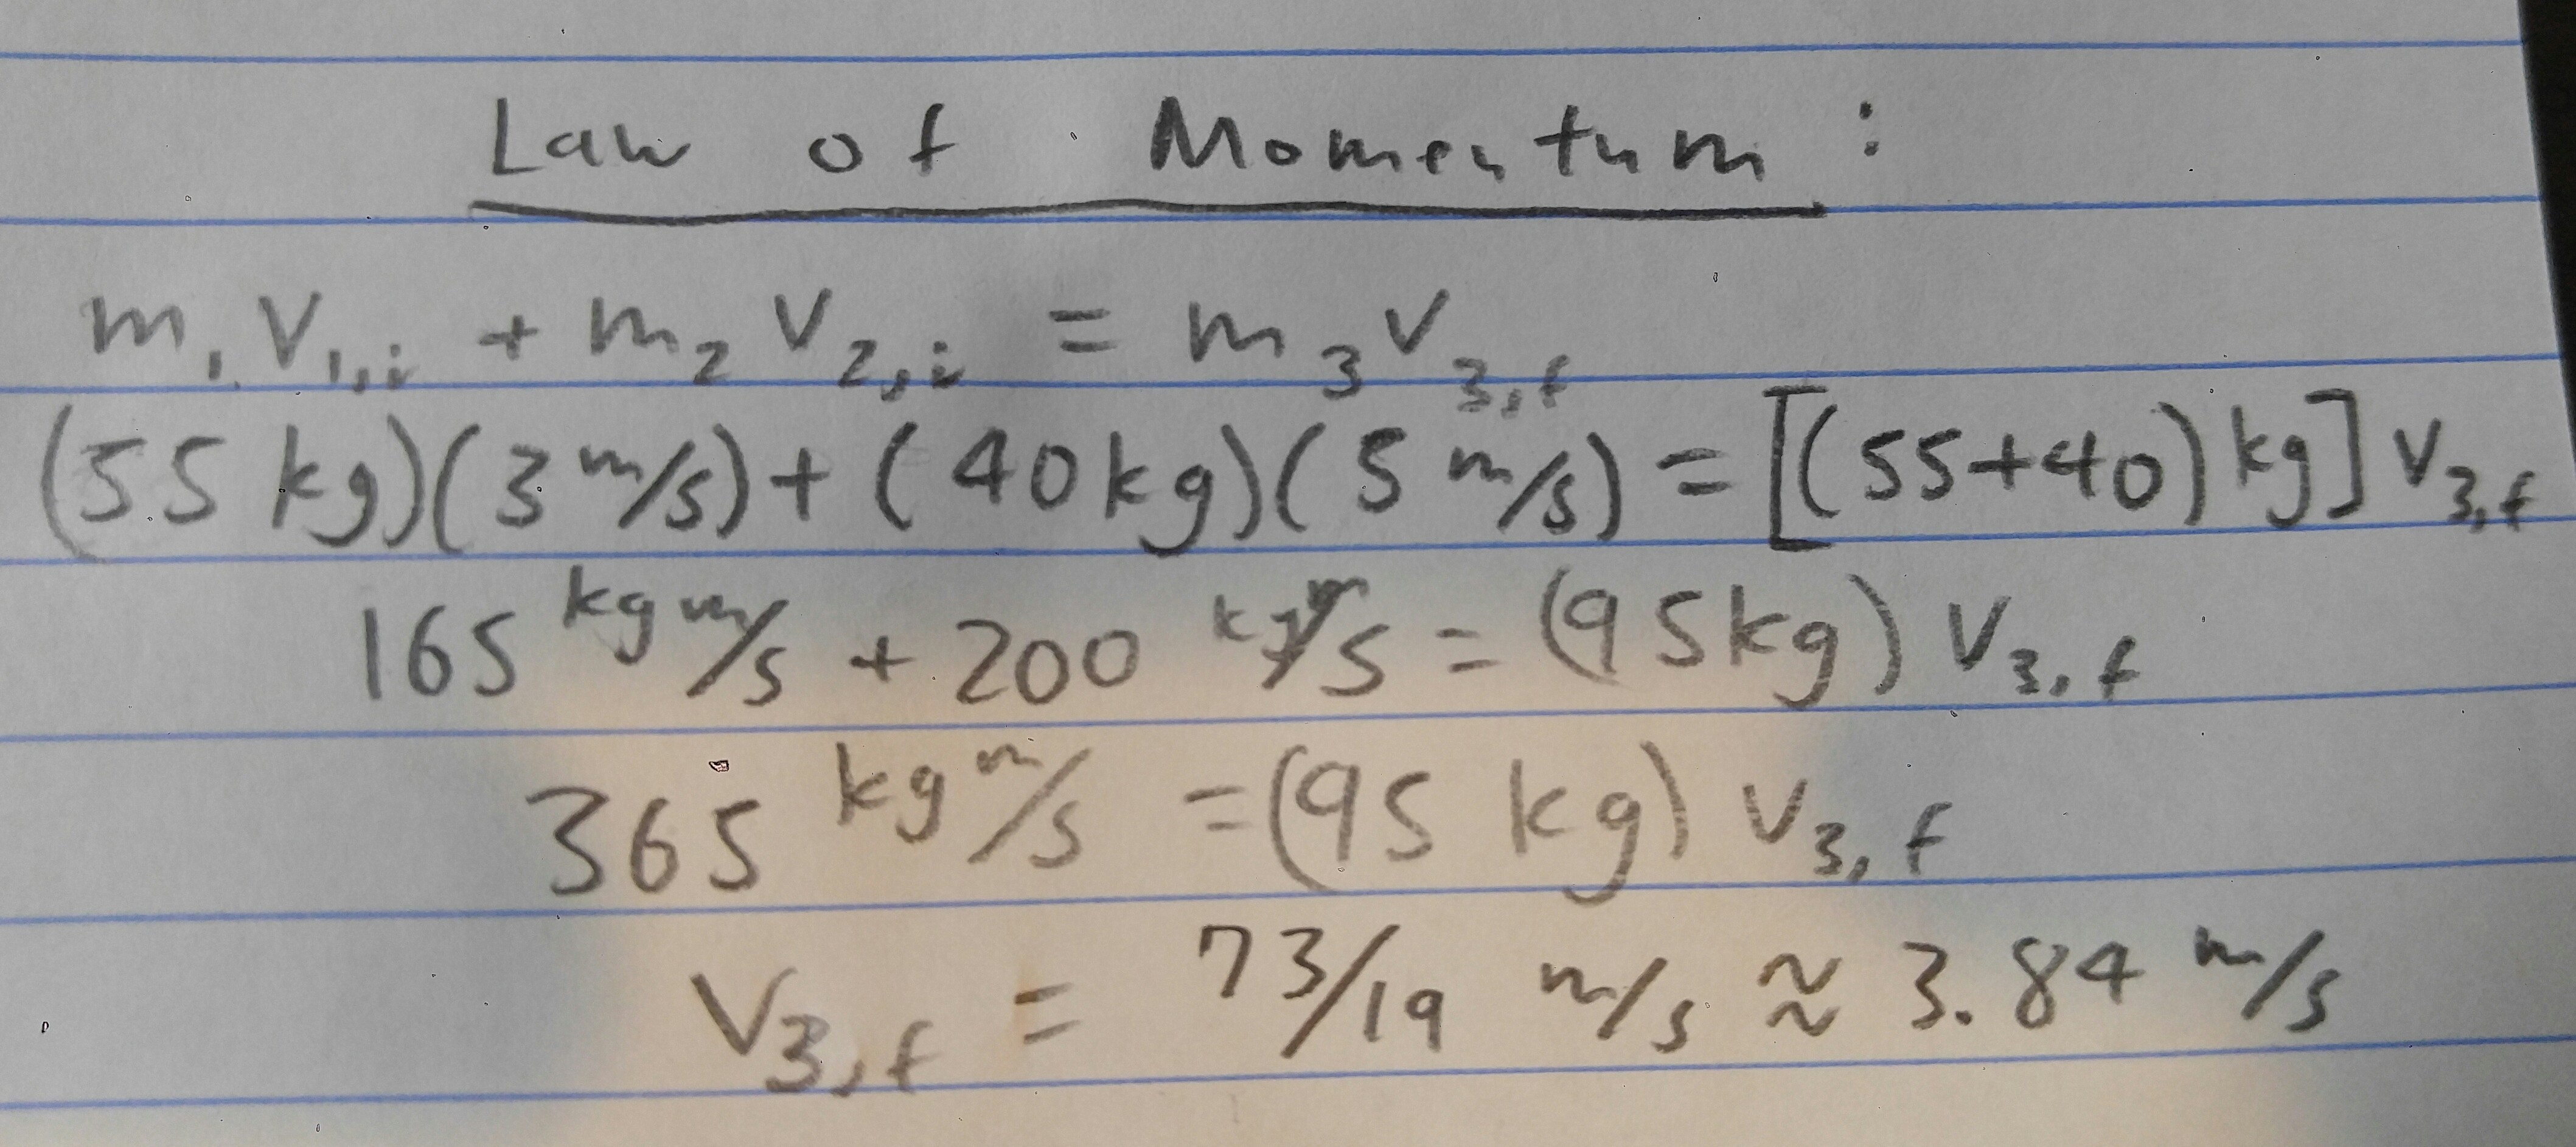 Law of Momentum :
m₁ V₁,ᵢ + m₂ V₂,ᵢ = m₃ V₃,f
(55 kg)(3 m/s) + (40 kg)(5 m/s) = [(55+40) kg] V₃,f
165 kg m/s + 200 kg m/s = (95 kg) V₃,f
365 kg m/s = (95 kg) V₃,f
V₃,f = 73/19 m/s ≈ 3.84 m/s